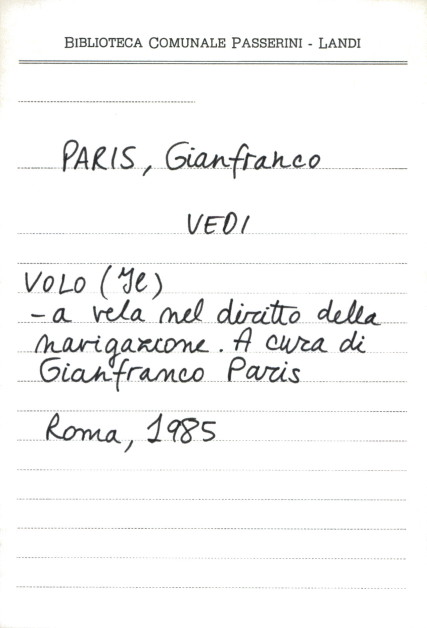 BIBLIOTECA COMUNALE PASSERINI - LANDI
PARIS, Gianfranco
VEDI
VOLO (Il)
- a vela nel diritto della
navigazione. A cura di
Gianfranco Paris
Roma, 1985